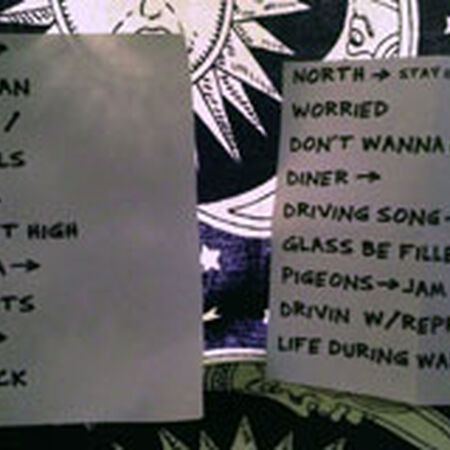 →
AN
/
LS
T HIGH
A→
TS
→
CK
NORTH → STAT
WORRIED
DON'T WANNA
DINER →
DRIVING SONG-
GLASS BE FILLE
PIGEONS→JAM
DRIVIN W/REPR
LIFE DURING WA